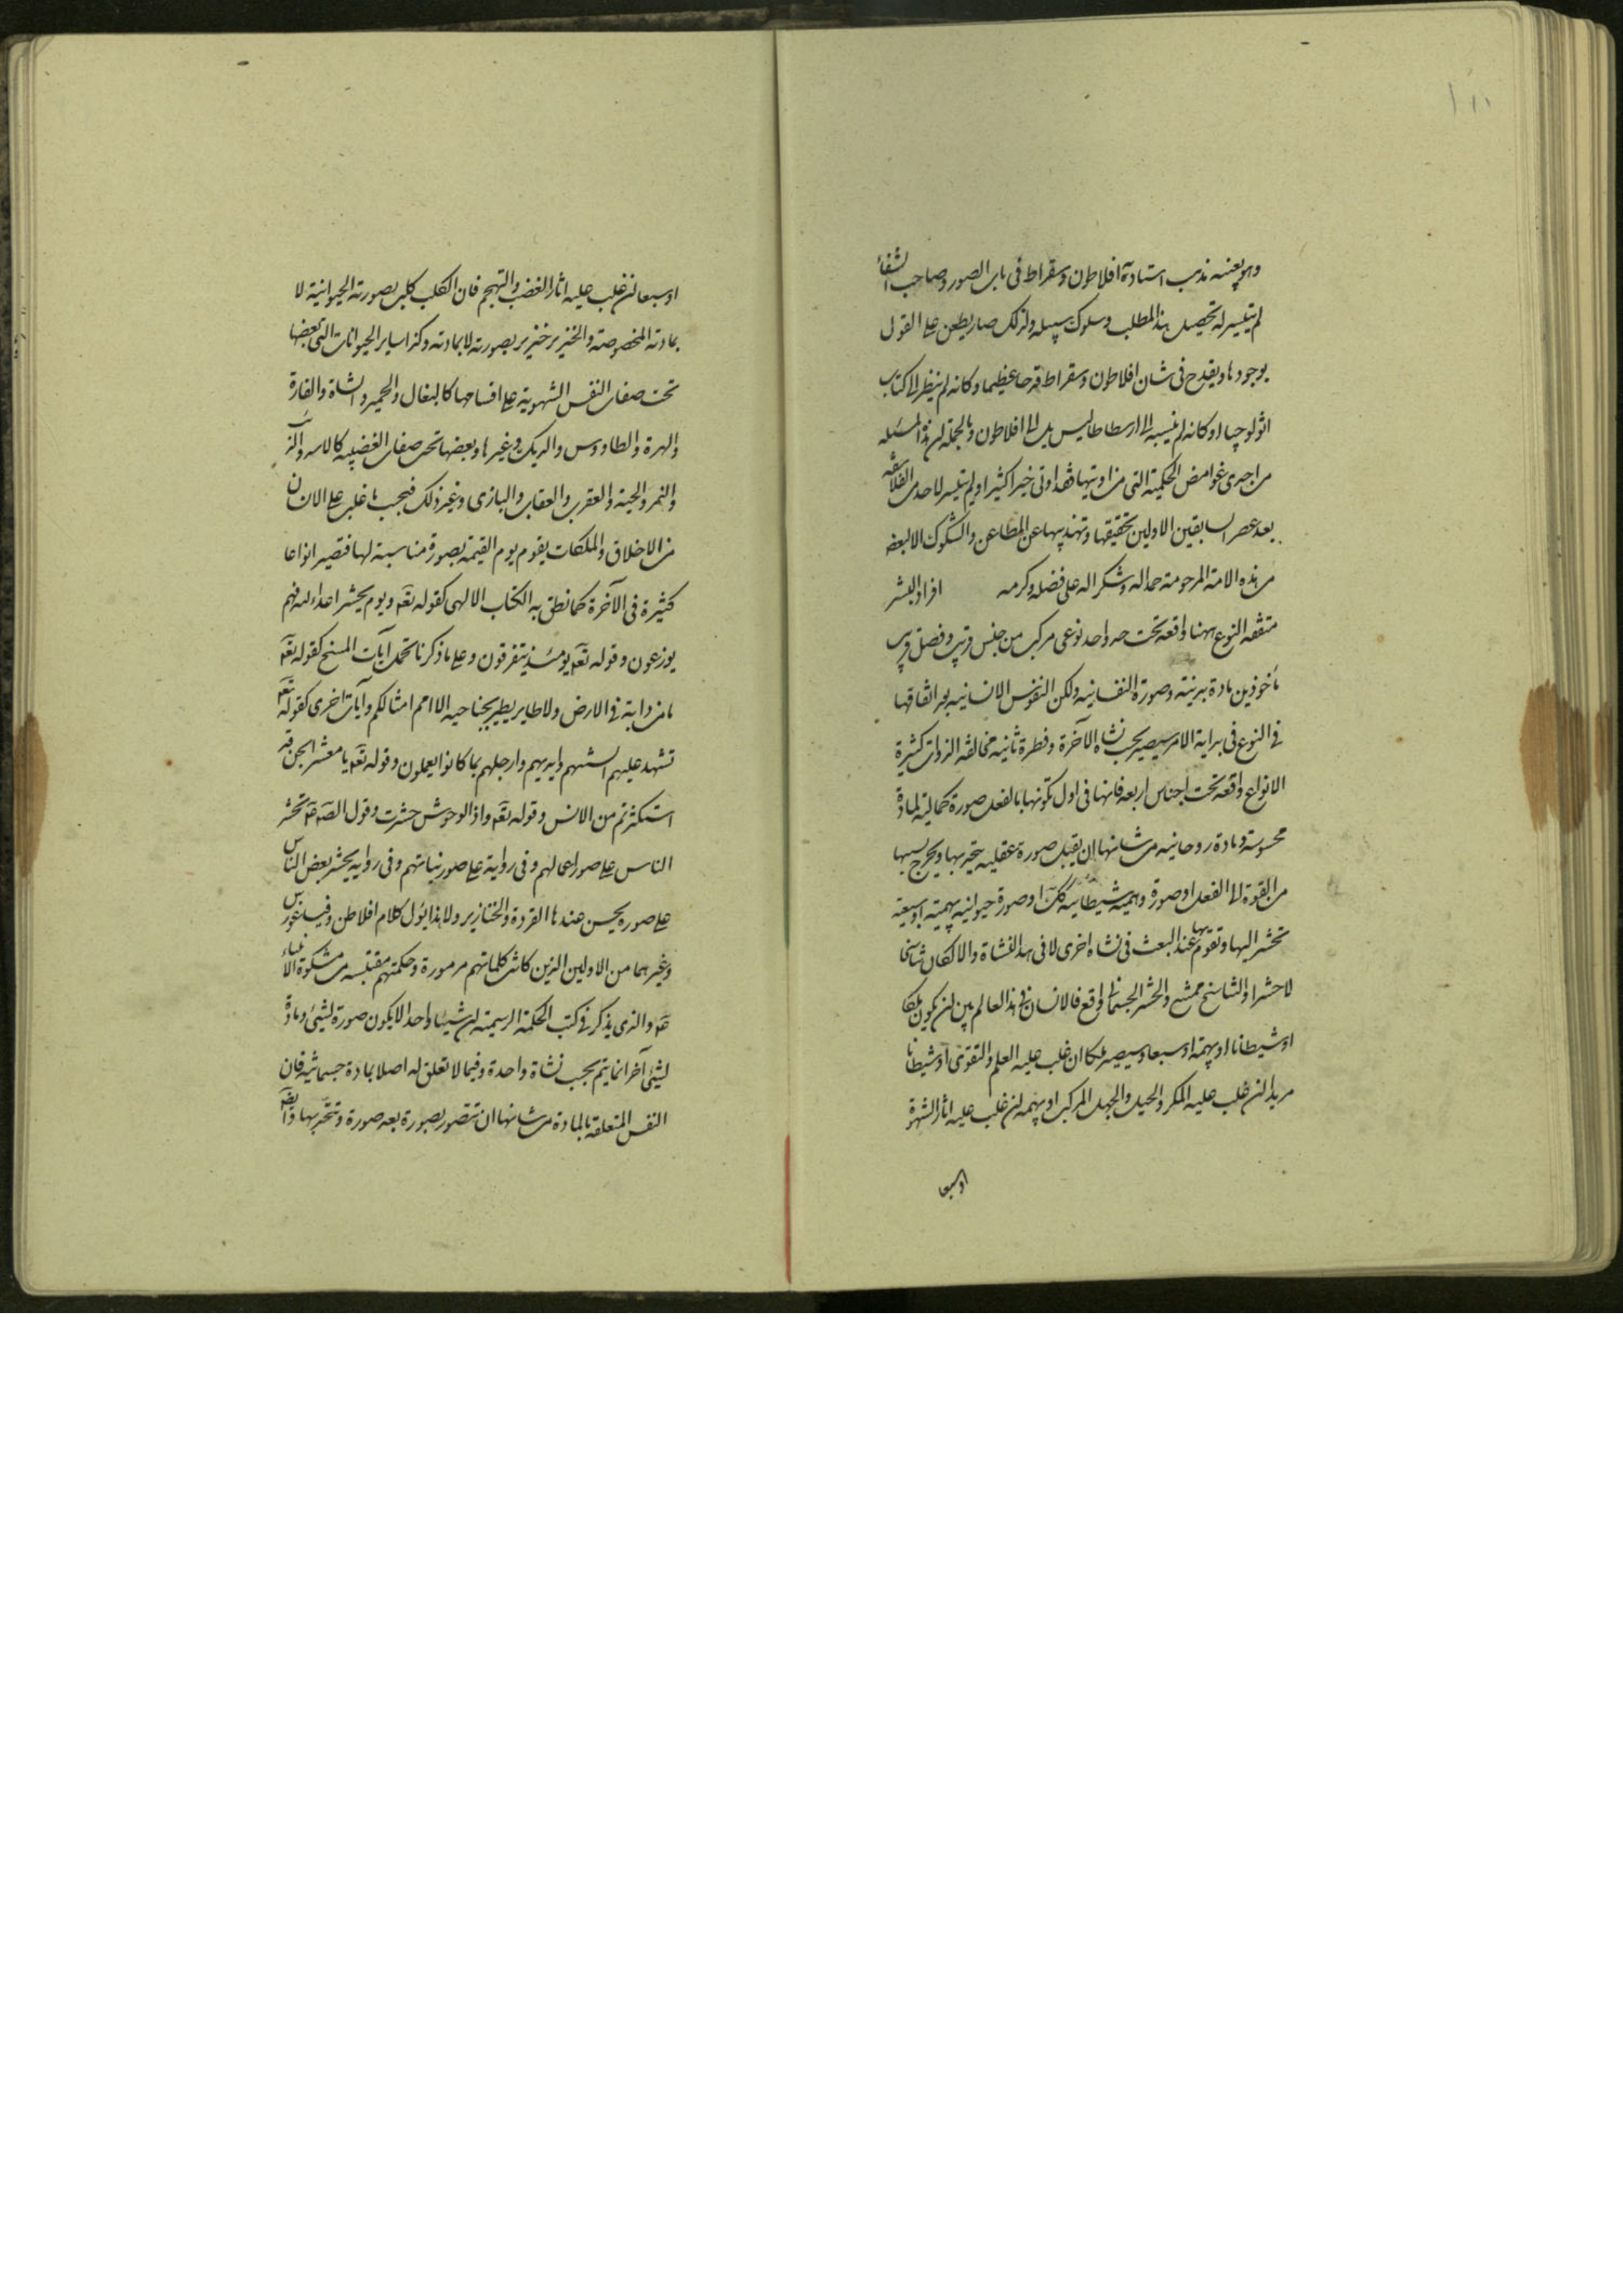 ١١١
وهو بعينه مذهب استاديه افلاطون وسقراط فى باب الصور وصاحب الشفاء
لم يتيسر له تحصيل هذا المطلب وسلوك سبيله ولذلك صار يطعن على القول
بوجودها ويقدح فى شان افلاطون وسقراط قدحا عظيما وكانه لم ينظر الى كتاب
اثولوجيا او كانه لم ينسبه الى ارسطاطاليس بل الى افلاطون وبالجملة ان هذه المسئله
من اجرى غوامض الحكمية التى من اوتيها فقد اوتى خيرا كثيرا ولم يتيسر لاحد من الفلاسفه
بعد عصر السابقين الاولين تحقيقها وتهذيبها عن المطاعن والشكوك الا لبعض
من هذه الامة المرحومة حمدا له وشكرا له على فضله وكرمه افراد البشر
متفقه النوع ههنا واقعه تحت حد واحد نوعى مركب من جنس قريب وفصل قريب
ماخوذين مادة بدنية وصورة النفسانيه ولكن النفوس الانسانيه بعد اتفاقها
فى النوع فى بداية الامر سيصير بحسب نشاة الآخرة وفطرة ثانيه مخالفه الذوات كثيرة
الانواع واقعه تحت اجناس اربعه فانها فى اول تكونها بالفعل صورة كمالية لمادة
محسوسة ومادة روحانيه من شانها ان يقبل صورة عقليه يتحد بها ويخرج بسببها
من القوة الى الفعل او صورة وهمية شيطانيه كك او صورة حيوانيه بهيمية او سبعية
تحشر اليها وتقوم بها عند البعث فى نشاه اخرى لا فى هذا النشاة والا لكان تناسخا
لا حشرا والتناسخ ممتنع والحشر الجسمانى واقع فالانسان فى هذا العالم بين ان يكون ملكا
او شيطانا او بهيمة او سبعا وسيصير ملكا ان غلب عليه العلم والتقوى او شيطانا
مريدا ان غلب عليه المكر والحيل والجهل المركب او بهيمه ان غلب عليه اثار الشهوة
او سبعا
او سبعا ان غلب عليه اثار الغضب والتهجم فان الكلب كلب بصورته الحيوانية لا
بمادته المخصوصة والخنزير خنزير بصورته لا بمادته وكذا ساير الحيوانات التى بعضها
تحت صفات النفس الشهوية على اقسامها كالبغال والحمير والشاة والفارة
والهرة والطاووس والديك وغيرها وبعضها تحت صفات الغضبيه كالاسد والذئب
والنمر والحية والعقرب والعقاب والبازى وغير ذلك فبحسب ما غلب على الانسان
من الاخلاق والملكات يقوم يوم القيمة بصورة مناسبة لها فتصير انواعا
كثيرة فى الآخرة كما نطق به الكتاب الالهى كقوله تعه ويوم يحشر اعداء الله فهم
يوزعون وقوله تعه يومئذ يتفرقون وعلى ما ذكرنا تحمل آيات المسخ كقوله تعه
ما من دابة فى الارض ولا طاير يطير بجناحيه الا امم امثالكم وآيات اخرى كقوله تعه
تشهد عليهم السنتهم وايديهم وارجلهم بما كانوا يعملون وقوله تعه يا معشر الجن قد
استكثرتم من الانس وقوله تعه واذا الوحوش حشرت وقول الصادق عه تحشر
الناس على صور اعمالهم وفى رواية على صور نياتهم وفى روايه يحشر بعض الناس
على صوره يحسن عندها القردة والخنازير ولا هذا يؤل كلام افلاطن وفيساغورس
وغيرهما من الاولين الذين كانت كلماتهم مرموزة وحكمتهم مقتبسه من مشكوة الانبياء
عه والذى يذكر فى كتب الحكمة الرسمية ان شيئا واحدا لا يكون صورة لشئ ومادة
لشئ آخر انما يتم بحسب نشاة واحدة وفيما لا تعلق له اصلا بمادة جسمانيه فان
النفس المتعلقه بالمادة من شانها ان تتصور بصورة بعد صورة وتتحد بها وايضه